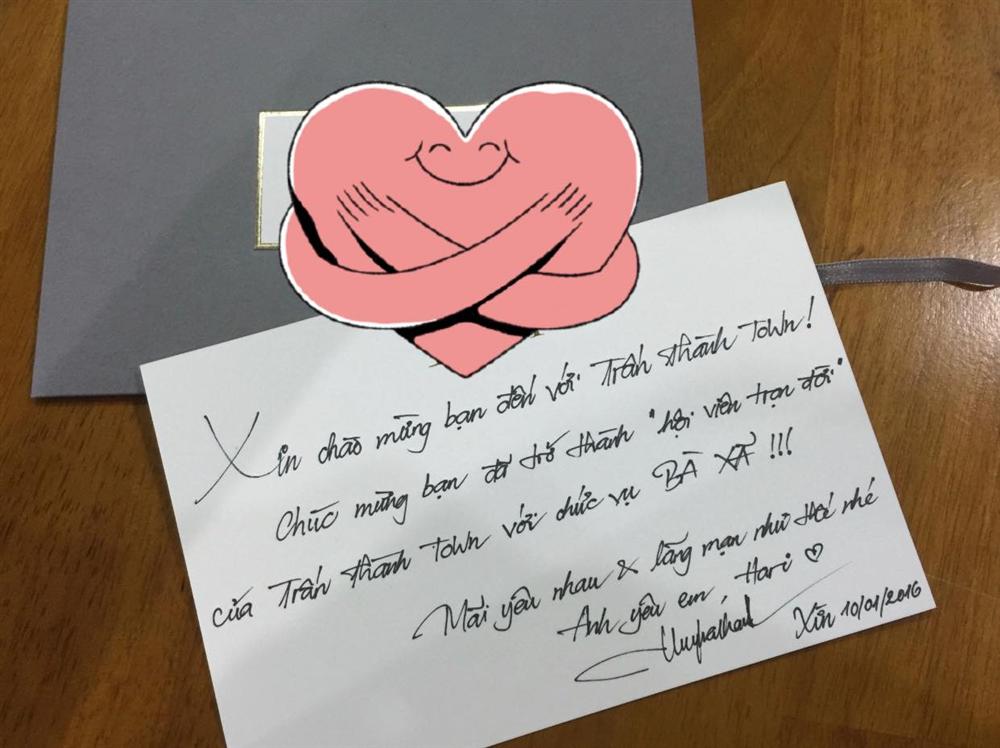 Xin chào mừng bạn đến với Trấn Thành Town!
Chúc mừng bạn đã trở thành "hội viên trọn đời"
của Trấn Thành Town với chức vụ BÀ XÃ !!!
Mãi yêu nhau & lãng mạn như thế nhé
Anh yêu em, Hari ♡
Xìn 10/01/2016